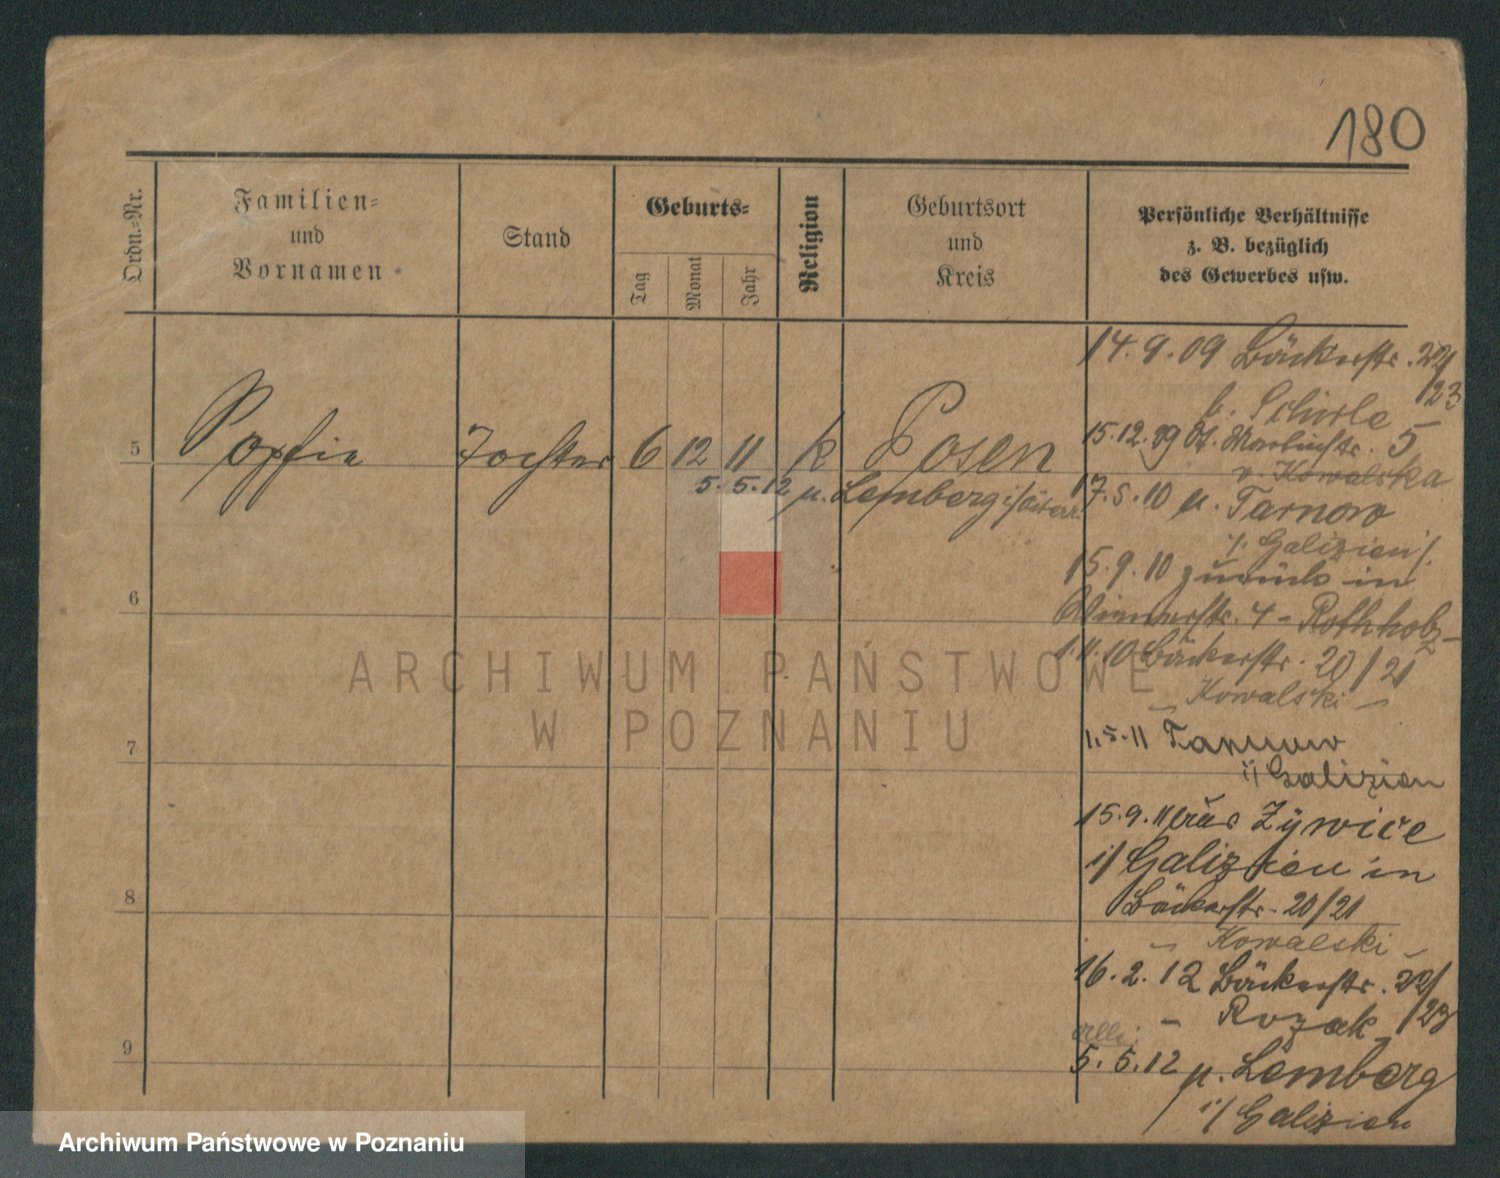 180
Ordn.-Nr.
Familien-
und
Vornamen
Stand
Geburts-
Tag
Monat
Jahr
Religion
Geburtsort
und
Kreis
Persönliche Verhältnisse
z. B. bezüglich
des Gewerbes usw.
14.9.09 Bäckerstr. 22/
23
b. Schirle
5 Tochter 6 12 11 k Posen
5.5.12 n. Lemberg i/Österr.
15.12.09 St. Martinstr. 5
v. Kowalska
17.5.10 n. Tarnow
/i. Galizien/.
15.9.10 zurück in
Wienerstr. 4 - Rothholz -
1.11.10 Bäckerstr. 20/21
- Kowalski -
1.5.11 Tarnow
i/Galizien
15.9.11 aus Zywice
i/Galizien in
Bäckerstr. 20/21
- Kowalski -
16.2.12 Bäckerstr. 22/
23
- Rozak -
5.5.12 n. Lemberg
i/Galizien
6
7
8
9
ARCHIWUM PAŃSTWOWE
W POZNANIU
Archiwum Państwowe w Poznaniu